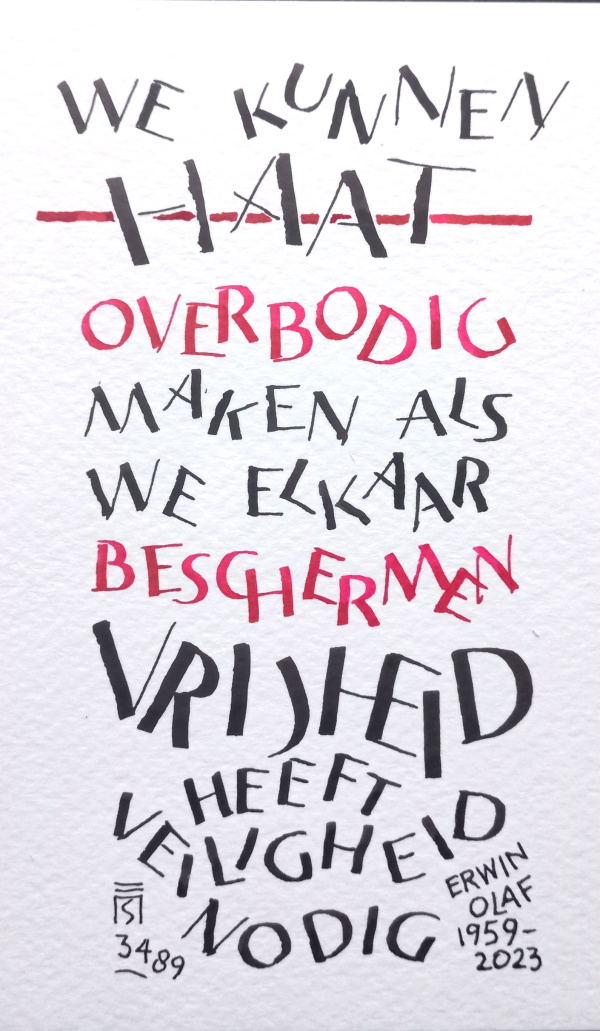 WE KUNNEN
HAAT
OVERBODIG
MAKEN ALS
WE ELKAAR
BESCHERMEN
VRIJHEID
HEEFT
VEILIGHEID
NODIG
ERWIN
OLAF
1959-
2023
3489